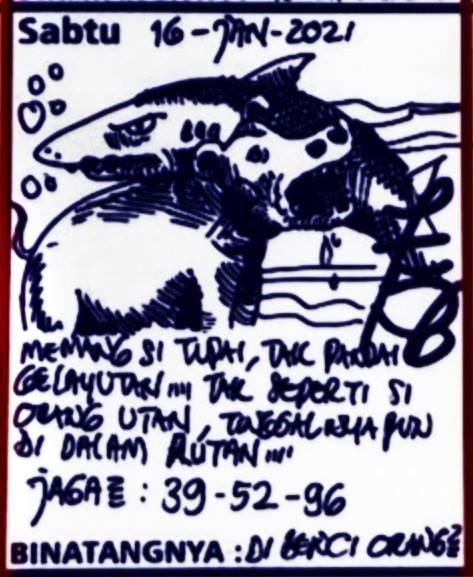 Sabtu 16-JAN-2021
MEMANG SI TUPAI, TAK PANDAI
GELAYUTAN.... TAK SEPERTI SI
ORANG UTAN, TINGGALNYA PUN
DI DALAM RUTAN....
JAGA² : 39-52-96
BINATANGNYA : DI BENCI ORANG²